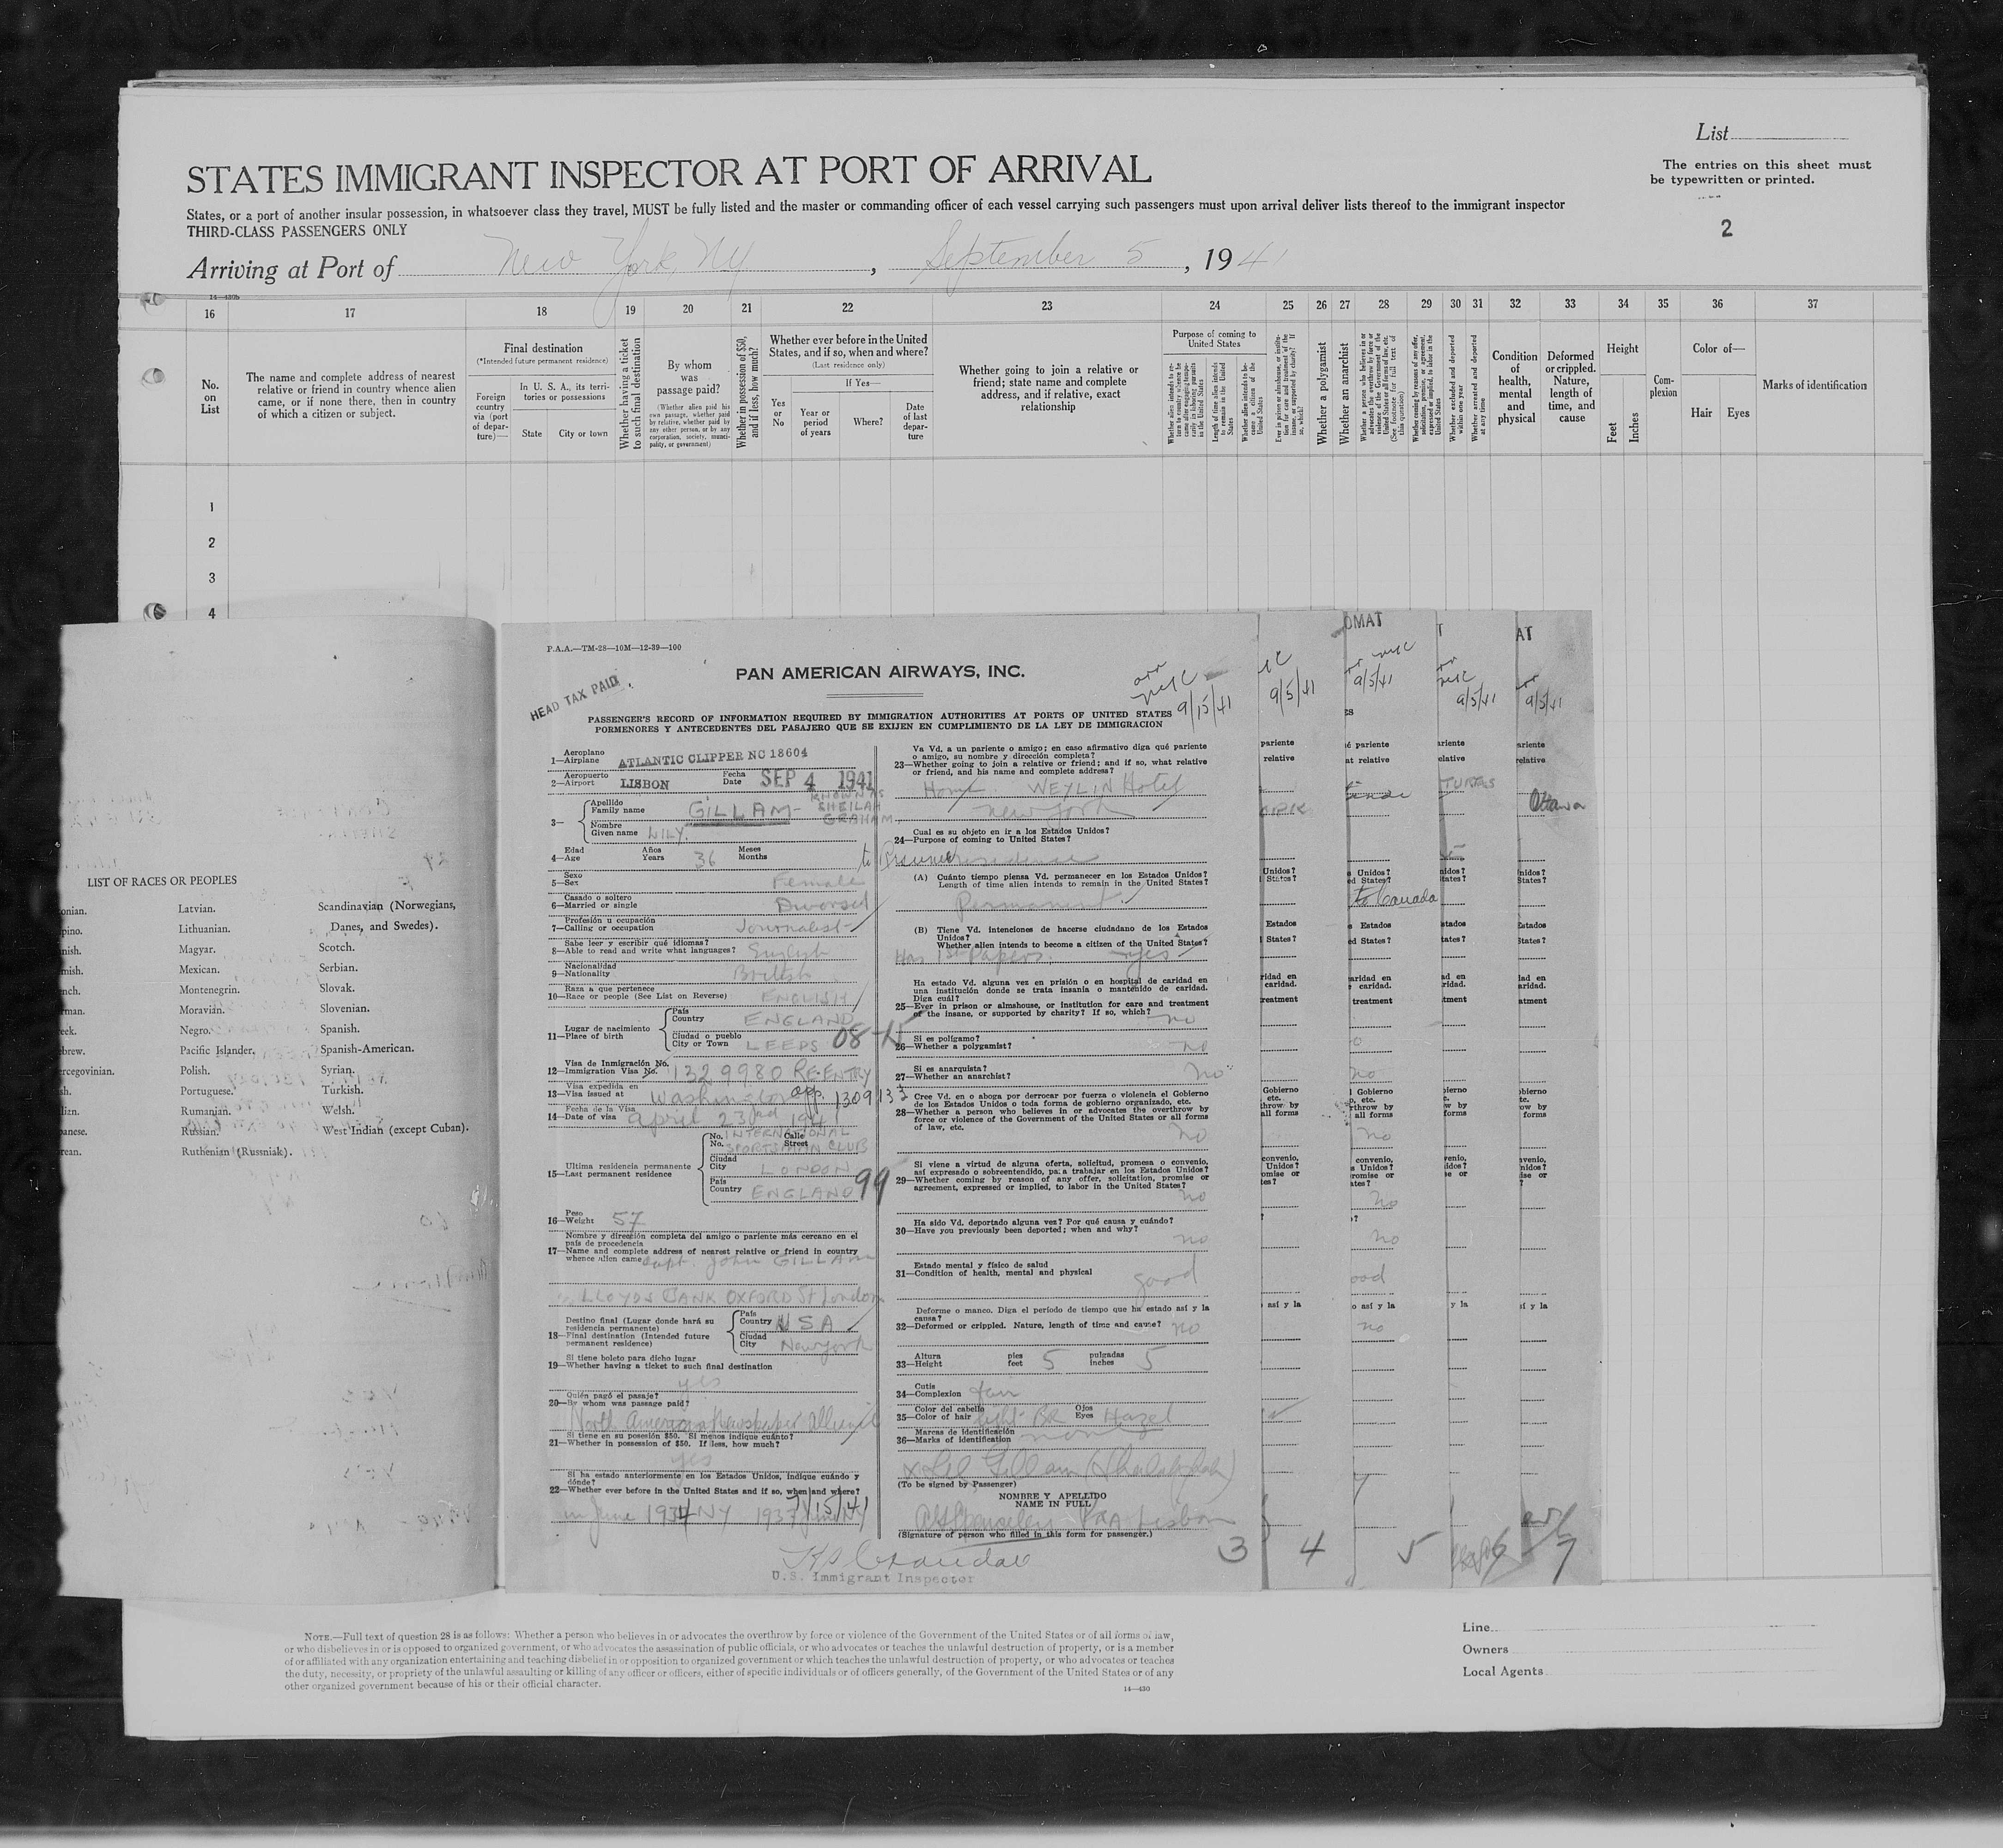 List
The entries on this sheet must
be typewritten or printed.
2
STATES IMMIGRANT INSPECTOR AT PORT OF ARRIVAL
States, or a port of another insular possession, in whatsoever class they travel, MUST be fully listed and the master or commanding officer of each vessel carrying such passengers must upon arrival deliver lists thereof to the immigrant inspector
THIRD-CLASS PASSENGERS ONLY
Arriving at Port of New York, NY, September 5, 1941
14—430b
16 17 18 19 20 21 22 23 24 25 26 27 28 29 30 31 32 33 34 35 36 37
No. on List
The name and complete address of nearest
relative or friend in country whence alien
came, or if none there, then in country
of which a citizen or subject.
Final destination
(*Intended future permanent residence)
Foreign country via (port of departure)—
In U. S. A., its territories or possessions
State
City or town
Whether having a ticket to such final destination
By whom was passage paid?
(Whether alien paid his own passage, whether paid by relative, whether paid by any other person, or by any corporation, society, municipality, or government)
Whether in possession of $50, and if less, how much?
Whether ever before in the United
States, and if so, when and where?
(Last residence only)
Yes or No
If Yes—
Year or period of years
Where?
Date of last departure
Whether going to join a relative or
friend; state name and complete
address, and if relative, exact
relationship
Purpose of coming to United States
Whether alien intends to return to country whence he came after engaging temporarily in laboring pursuits in the United States
Length of time alien intends to remain in the United States
Whether alien intends to become a citizen of the United States
Ever in prison or almshouse, or institution for care and treatment of the insane, or supported by charity? If so, which?
Whether a polygamist
Whether an anarchist
Whether a person who believes in or advocates the overthrow by force or violence of the Government of the United States or all forms of law, etc. (See footnote for full text of this question)
Whether coming by reason of any offer, solicitation, promise, or agreement, expressed or implied, to labor in the United States
Whether excluded and deported within one year
Whether arrested and deported at any time
Condition of health, mental and physical
Deformed or crippled. Nature, length of time, and cause
Height
Feet
Inches
Complexion
Color of—
Hair
Eyes
Marks of identification
1
2
3
4
LIST OF RACES OR PEOPLES
onian. Latvian. Scandinavian (Norwegians,
pino. Lithuanian. Danes, and Swedes).
nish. Magyar. Scotch.
mish. Mexican. Serbian.
nch. Montenegrin. Slovak.
rman. Moravian. Slovenian.
eek. Negro. Spanish.
ebrew. Pacific Islander. Spanish-American.
ercegovinian. Polish. Syrian.
sh. Portuguese. Turkish.
lian. Rumanian. Welsh.
panese. Russian. West Indian (except Cuban).
rean. Ruthenian (Russniak).
P.A.A.—TM-28—10M—12-39—100
PAN AMERICAN AIRWAYS, INC.
HEAD TAX PAID
arr
9/15/41
PASSENGER'S RECORD OF INFORMATION REQUIRED BY IMMIGRATION AUTHORITIES AT PORTS OF UNITED STATES
PORMENORES Y ANTECEDENTES DEL PASAJERO QUE SE EXIJEN EN CUMPLIMIENTO DE LA LEY DE IMMIGRACION
Aeroplano
1—Airplane ATLANTIC CLIPPER NC 18604
Aeropuerto Fecha
2—Airport LISBON Date SEP 4 1941
3— Apellido
Family name GILLAM- KNOWN AS SHEILAH GRAHAM
Nombre
Given name LILY.
Edad Años Meses
4—Age Years 36 Months
Sexo
5—Sex Female
Casado o soltero
6—Married or single Divorsed
Profesión u ocupation
7—Calling or occupation Journalist
Sabe leer y escribir qué idiomas?
8—Able to read and write what languages? English
Nacionalidad
9—Nationality British
Raza a que pertenece
10—Race or people (See List on Reverse) ENGLISH
Lugar de nacimiento
11—Place of birth
País
Country ENGLAND
Ciudad o pueblo
City or Town LEEDS
Visa de Inmigración No.
12—Immigration Visa No. 1329980 RE-ENTRY
Visa expedida en
13—Visa issued at Washington app. 1309133
Fecha de la Visa
14—Date of visa April 23rd 1941
Ultima residencia permanente
15—Last permanent residence
No. Calle
No. Street INTERNATIONAL SPORTSMAN CLUB
Ciudad
City LONDON
País
Country ENGLAND 99
Peso
16—Weight 57
Nombre y dirección completa del amigo o pariente más cercano en el
país de procedencia
17—Name and complete address of nearest relative or friend in country
whence alien came Capt. John GILLAM
LLOYDS BANK OXFORD St London
Destino final (Lugar donde hará su
residencia permanente)
18—Final destination (Intended future
permanent residence)
País
Country USA
Ciudad
City New York
Si tiene boleto para dicho lugar
19—Whether having a ticket to such final destination
yes
Quién pagó el pasaje?
20—By whom was passage paid?
North American Newspaper Alliance
Si tiene en su posesión $50. Si menos indique cuánto?
21—Whether in possession of $50. If less, how much?
yes
Si ha estado anteriormente en los Estados Unidos, indique cuándo y
dónde?
22—Whether ever before in the United States and if so, when and where?
in June 1934 NY 1937 7/15/41 NY
Va Vd. a un pariente o amigo; en caso afirmativo diga qué pariente
o amigo, su nombre y dirección completa?
23—Whether going to join a relative or friend; and if so, what relative
or friend, and his name and complete address?
Home. WEYLIN Hotel
New York
Cual es su objeto en ir a los Estados Unidos?
24—Purpose of coming to United States?
to Resume residence
(A) Cuánto tiempo piensa Vd. permanecer en los Estados Unidos?
Length of time alien intends to remain in the United States?
Permanent
(B) Tiene Vd. intenciones de hacerse ciudadano de los Estados
Unidos?
Whether alien intends to become a citizen of the United States?
Has 1st Papers. yes
Ha estado Vd. alguna vez en prisión o en hospital de caridad en
una institución donde se trata insania o mantenido de caridad.
Diga cuál?
25—Ever in prison or almshouse, or institution for care and treatment
of the insane, or supported by charity? If so, which?
no
Si es polígamo?
26—Whether a polygamist? no
Si es anarquista?
27—Whether an anarchist? no
Cree Vd. en o aboga por derrocar por fuerza o violencia el Gobierno
de los Estados Unidos o toda forma de gobierno organizado, etc.
28—Whether a person who believes in or advocates the overthrow by
force or violence of the Government of the United States or all forms
of law, etc.
no
Si viene a virtud de alguna oferta, solicitud, promesa o convenio,
así expresado o sobreentendido, para trabajar en los Estados Unidos?
29—Whether coming by reason of any offer, solicitation, promise or
agreement, expressed or implied, to labor in the United States?
no
Ha sido Vd. deportado alguna vez? Por qué causa y cuándo?
30—Have you previously been deported; when and why?
no
Estado mental y físico de salud
31—Condition of health, mental and physical good
Deforme o manco. Diga el período de tiempo que ha estado así y la
causa?
32—Deformed or crippled. Nature, length of time and cause? no
Altura pies pulgadas
33—Height feet 5 inches 5
Cutis
34—Complexion fair
Color del cabello Ojos
35—Color of hair light BR Eyes Hazel
Marcas de identificación
36—Marks of identification none
(To be signed by Passenger)
NOMBRE Y APELLIDO
NAME IN FULL
PAA Lisbon
(Signature of person who filled in this form for passenger.)
U.S. Immigrant Inspector
3 4 5 6 7
9/5/41 9/5/41 9/5/41 9/5/41
OMAT
AT
Ottawa
to Canada
NOTE.—Full text of question 28 is as follows: Whether a person who believes in or advocates the overthrow by force or violence of the Government of the United States or of all forms of law,
or who disbelieves in or is opposed to organized government, or who advocates the assassination of public officials, or who advocates or teaches the unlawful destruction of property, or is a member
of or affiliated with any organization entertaining and teaching disbelief in or opposition to organized government or which teaches the unlawful destruction of property, or who advocates or teaches
the duty, necessity, or propriety of the unlawful assaulting or killing of any officer or officers, either of specific individuals or of officers generally, of the Government of the United States or of any
other organized government because of his or their official character.
14—430
Line
Owners
Local Agents